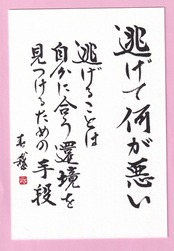 逃げて何が悪い
逃げることは
自分に合う環境を
見つけるための手段